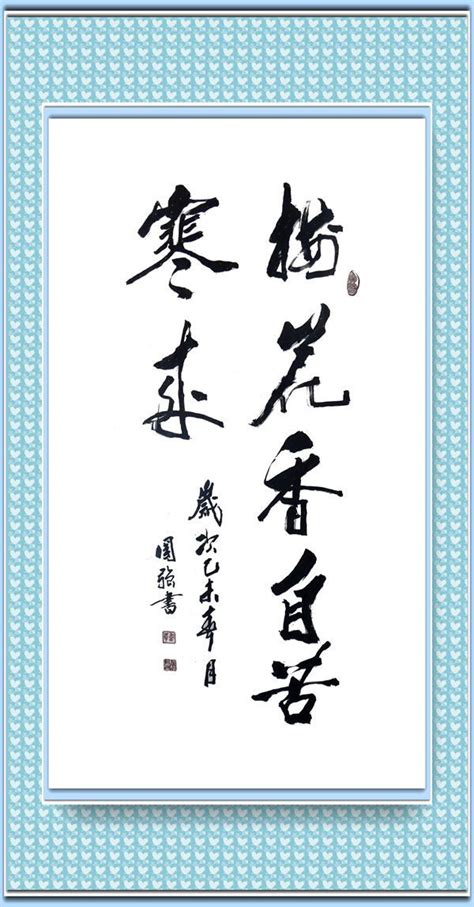 梅花香自苦
寒来
歲次乙未春月
國強書